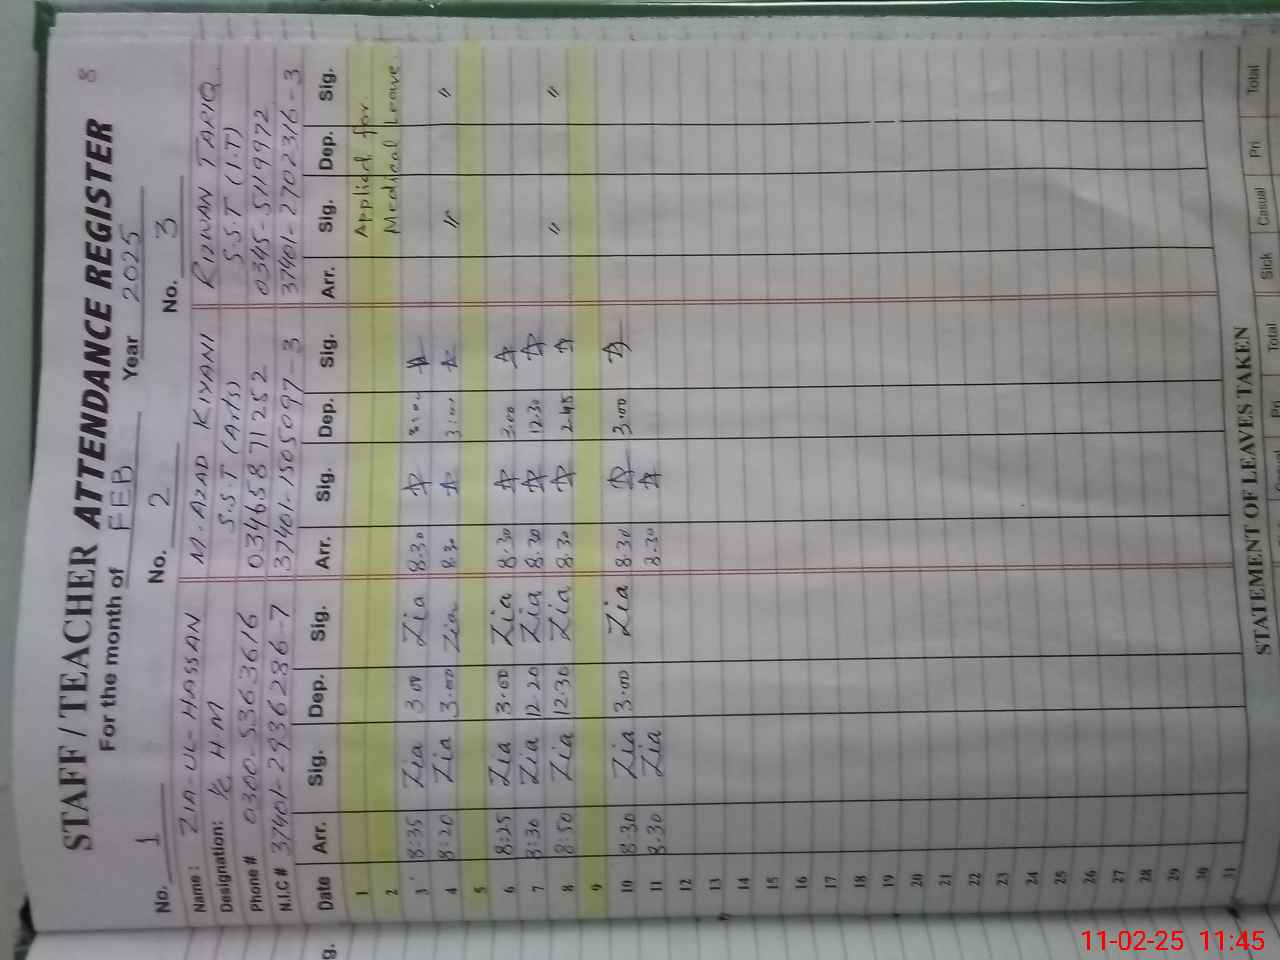 STAFF / TEACHER ATTENDANCE REGISTER 8
For the month of FEB Year 2025
No. 1 No. 2 No. 3
Name : ZIA-UL-HASSAN M. AZAD KIYANI RIZWAN TARIQ
Designation: I/c H M S.S.T (Arts) S.S.T (I.T)
Phone # 0300-5363616 03465871252 0345-5119772
N.I.C # 37401-2936286-7 37401-1505097-3 37401-2702316-3
Date Arr. Sig. Dep. Sig. Arr. Sig. Dep. Sig. Arr. Sig. Dep. Sig.
1 Applied for
2 Medical Leave.
3 8:35 Zia 3 00 Zia 8.30 3:00
4 8:20 Zia 3.00 Zia 8.30 3:00 〃 〃
5
6 8:25 Zia 3.00 Zia 8.30 3.00
7 8:30 Zia 12.20 Zia 8.30 12.30
8 8:50 Zia 12.30 Zia 8.30 2.45 〃 〃
9
10 8.30 Zia 3.00 Zia 8.30 3.00
11 8.30 Zia 8.30
12
13
14
15
16
17
18
19
20
21
22
23
24
25
26
27
28
29
30
31
STATEMENT OF LEAVES TAKEN
Pri Total Sick Casual Pri Total
g.
11-02-25 11:45